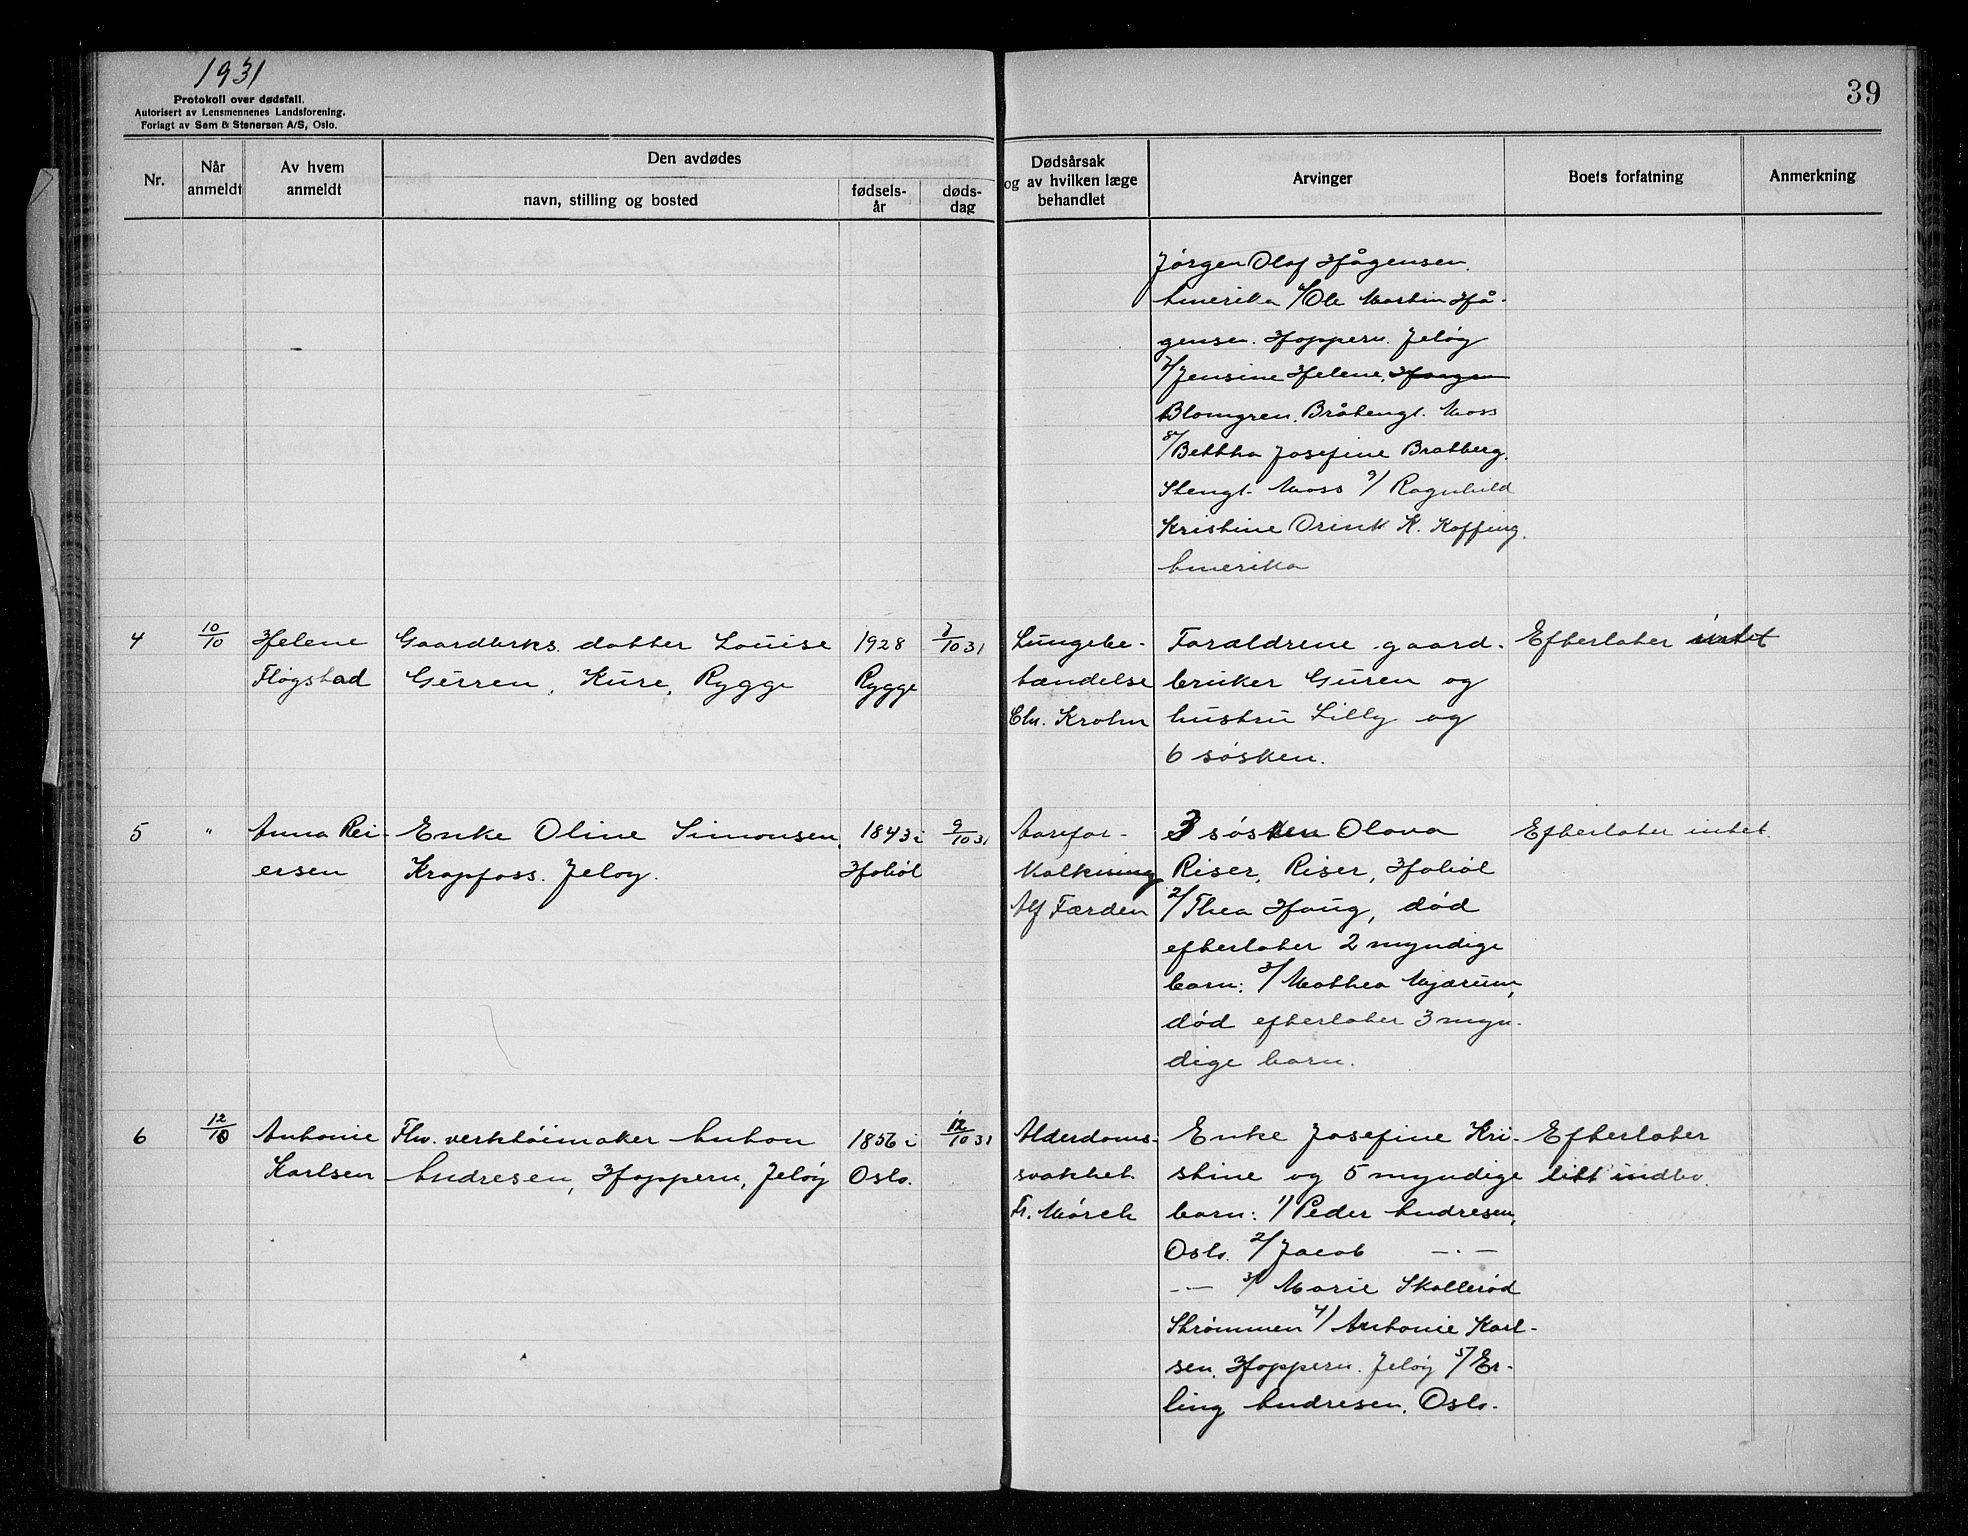 1931
Protokoll over dødsfall.
Autorisert av Lensmennenes Landsforening.
Forlagt av Sem & Stenersen A/S, Oslo.
39
Nr.
Når anmeldt
Av hvem anmeldt
Den avdødes
navn, stilling og bosted
fødsels-år
døds-dag
Dødsårsak
og av hvilken læge
behandlet
Arvinger
Boets forfatning
Anmerkning
Jørgen Olaf Hågensen.
Amerika 6/ Ole Martin Hå-
gensen. Hoppern. Jeløy
7/ Jensine Helene.
Blomgren. Bråtengt. Moss
8/ Bettha Josefine Bratberg.
Stengt. Moss 9/ Ragnhild
Kristine Orink K. Koffing.
Amerika
4
10/10
Helene
Fløgstad
Gaardbrks. datter Louise
Gürren, Kure, Rygge
1928
Rygge
7/10 31
Lungebe-
tændelse
Chr. Krohn
Foraldrene gaard-
bruker Guren og
hustru Lilly og
6 søsken.
Efterlater intet
5
"
Anna Rei-
ersen
Enke Oline Simonsen,
Krapfoss. Jeløy.
1843 i
Hobøl
9/10 31
Aarefor-
kalkning
Alf Færden
3 søsken Olava
Riser, Riser, Hobøl
2/ Thea Haug, død
efterlater 2 myndige
barn: 3/ Mathea Mjærum,
død efterlater 3 myn-
dige barn.
Efterlater intet.
6
12/10
Antonie
Karlsen
Fhv. verktøimaker Anton
Andresen, Hoppern, Jeløy
1856 i
Oslo.
12/10 31
Alderdoms-
svakhet.
Fr. Mørch
Enke Josefine Kri-
stine og 5 myndige
barn: 1/ Peder Andresen,
Oslo. 2/ Jacob —.—
—.— 3/ Marie Skallerød
Strømmen 4/ Antonie Karl-
sen. Hoppern. Jeløy 5/ Er-
ling Andresen. Oslo.
Efterlater
litt indbo.